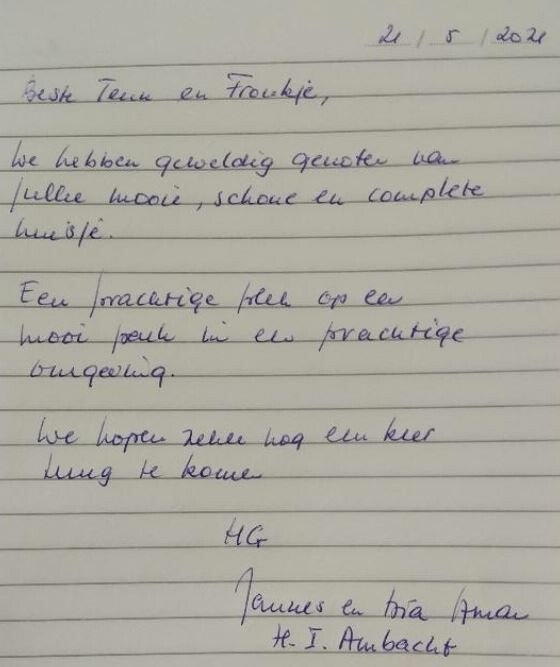 21 / 5 / 2021
Beste Teun en Froukje,
We hebben geweldig genoten van
jullie mooie, schone en complete
huisje.
Een prachtige plek op een
mooi park in een prachtige
omgeving.
We hopen zeker nog een keer
terug te komen
HG
Jannes en Ria
H. I. Ambacht